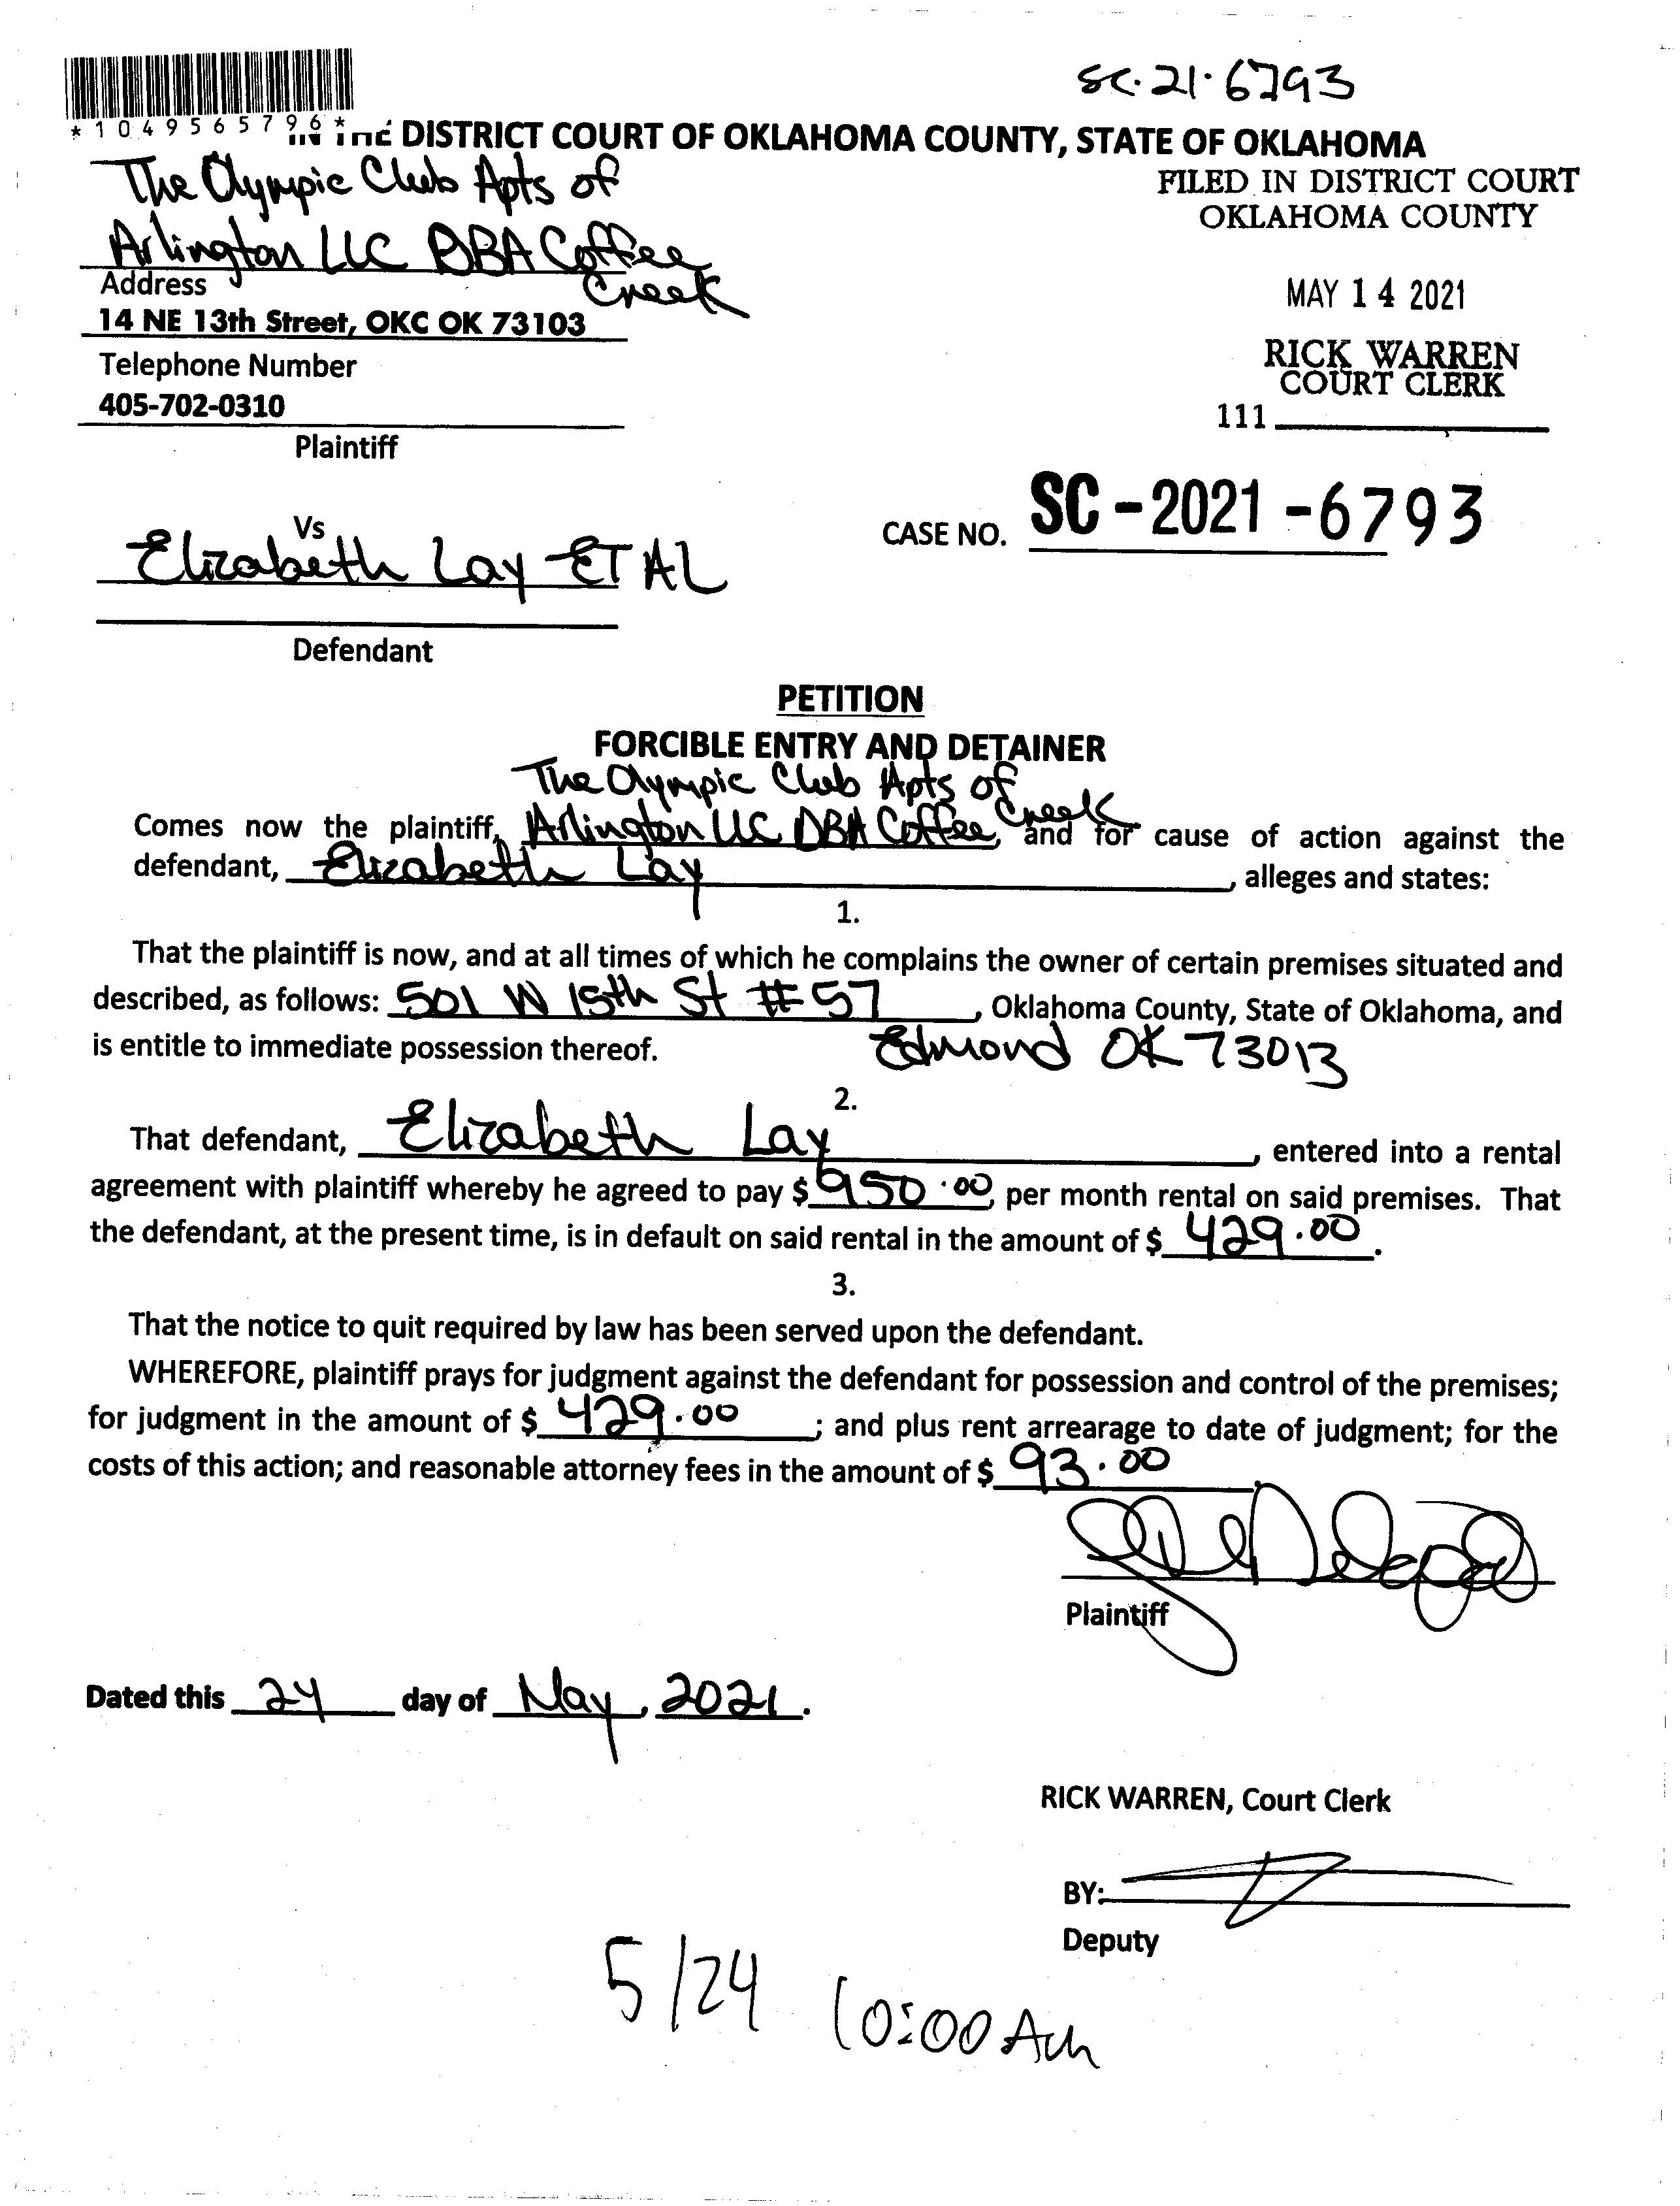 SC-21-6793
*1049565796*
IN THE DISTRICT COURT OF OKLAHOMA COUNTY, STATE OF OKLAHOMA
The Olympic Club Apts of
Arlington LLC DBA Coffee
Creek
FILED IN DISTRICT COURT
OKLAHOMA COUNTY
MAY 14 2021
RICK WARREN
COURT CLERK
111
Address
14 NE 13th Street, OKC OK 73103
Telephone Number
405-702-0310
Plaintiff
Vs
Elizabeth Lay ET AL
Defendant
CASE NO. SC-2021-6793
PETITION
FORCIBLE ENTRY AND DETAINER
The Olympic Club Apts of
Comes now the plaintiff, Arlington LLC DBA Coffee Creek, and for cause of action against the
defendant, Elizabeth Lay, alleges and states:
1.
That the plaintiff is now, and at all times of which he complains the owner of certain premises situated and
described, as follows: 501 W 15th St #57, Oklahoma County, State of Oklahoma, and
is entitle to immediate possession thereof. Edmond OK 73013
2.
That defendant, Elizabeth Lay, entered into a rental
agreement with plaintiff whereby he agreed to pay $ 950.00, per month rental on said premises. That
the defendant, at the present time, is in default on said rental in the amount of $ 429.00.
3.
That the notice to quit required by law has been served upon the defendant.
WHEREFORE, plaintiff prays for judgment against the defendant for possession and control of the premises;
for judgment in the amount of $ 429.00; and plus rent arrearage to date of judgment; for the
costs of this action; and reasonable attorney fees in the amount of $ 93.00.
Plaintiff
Dated this 24 day of May, 2021.
RICK WARREN, Court Clerk
BY:
Deputy
5/24 10:00 Am